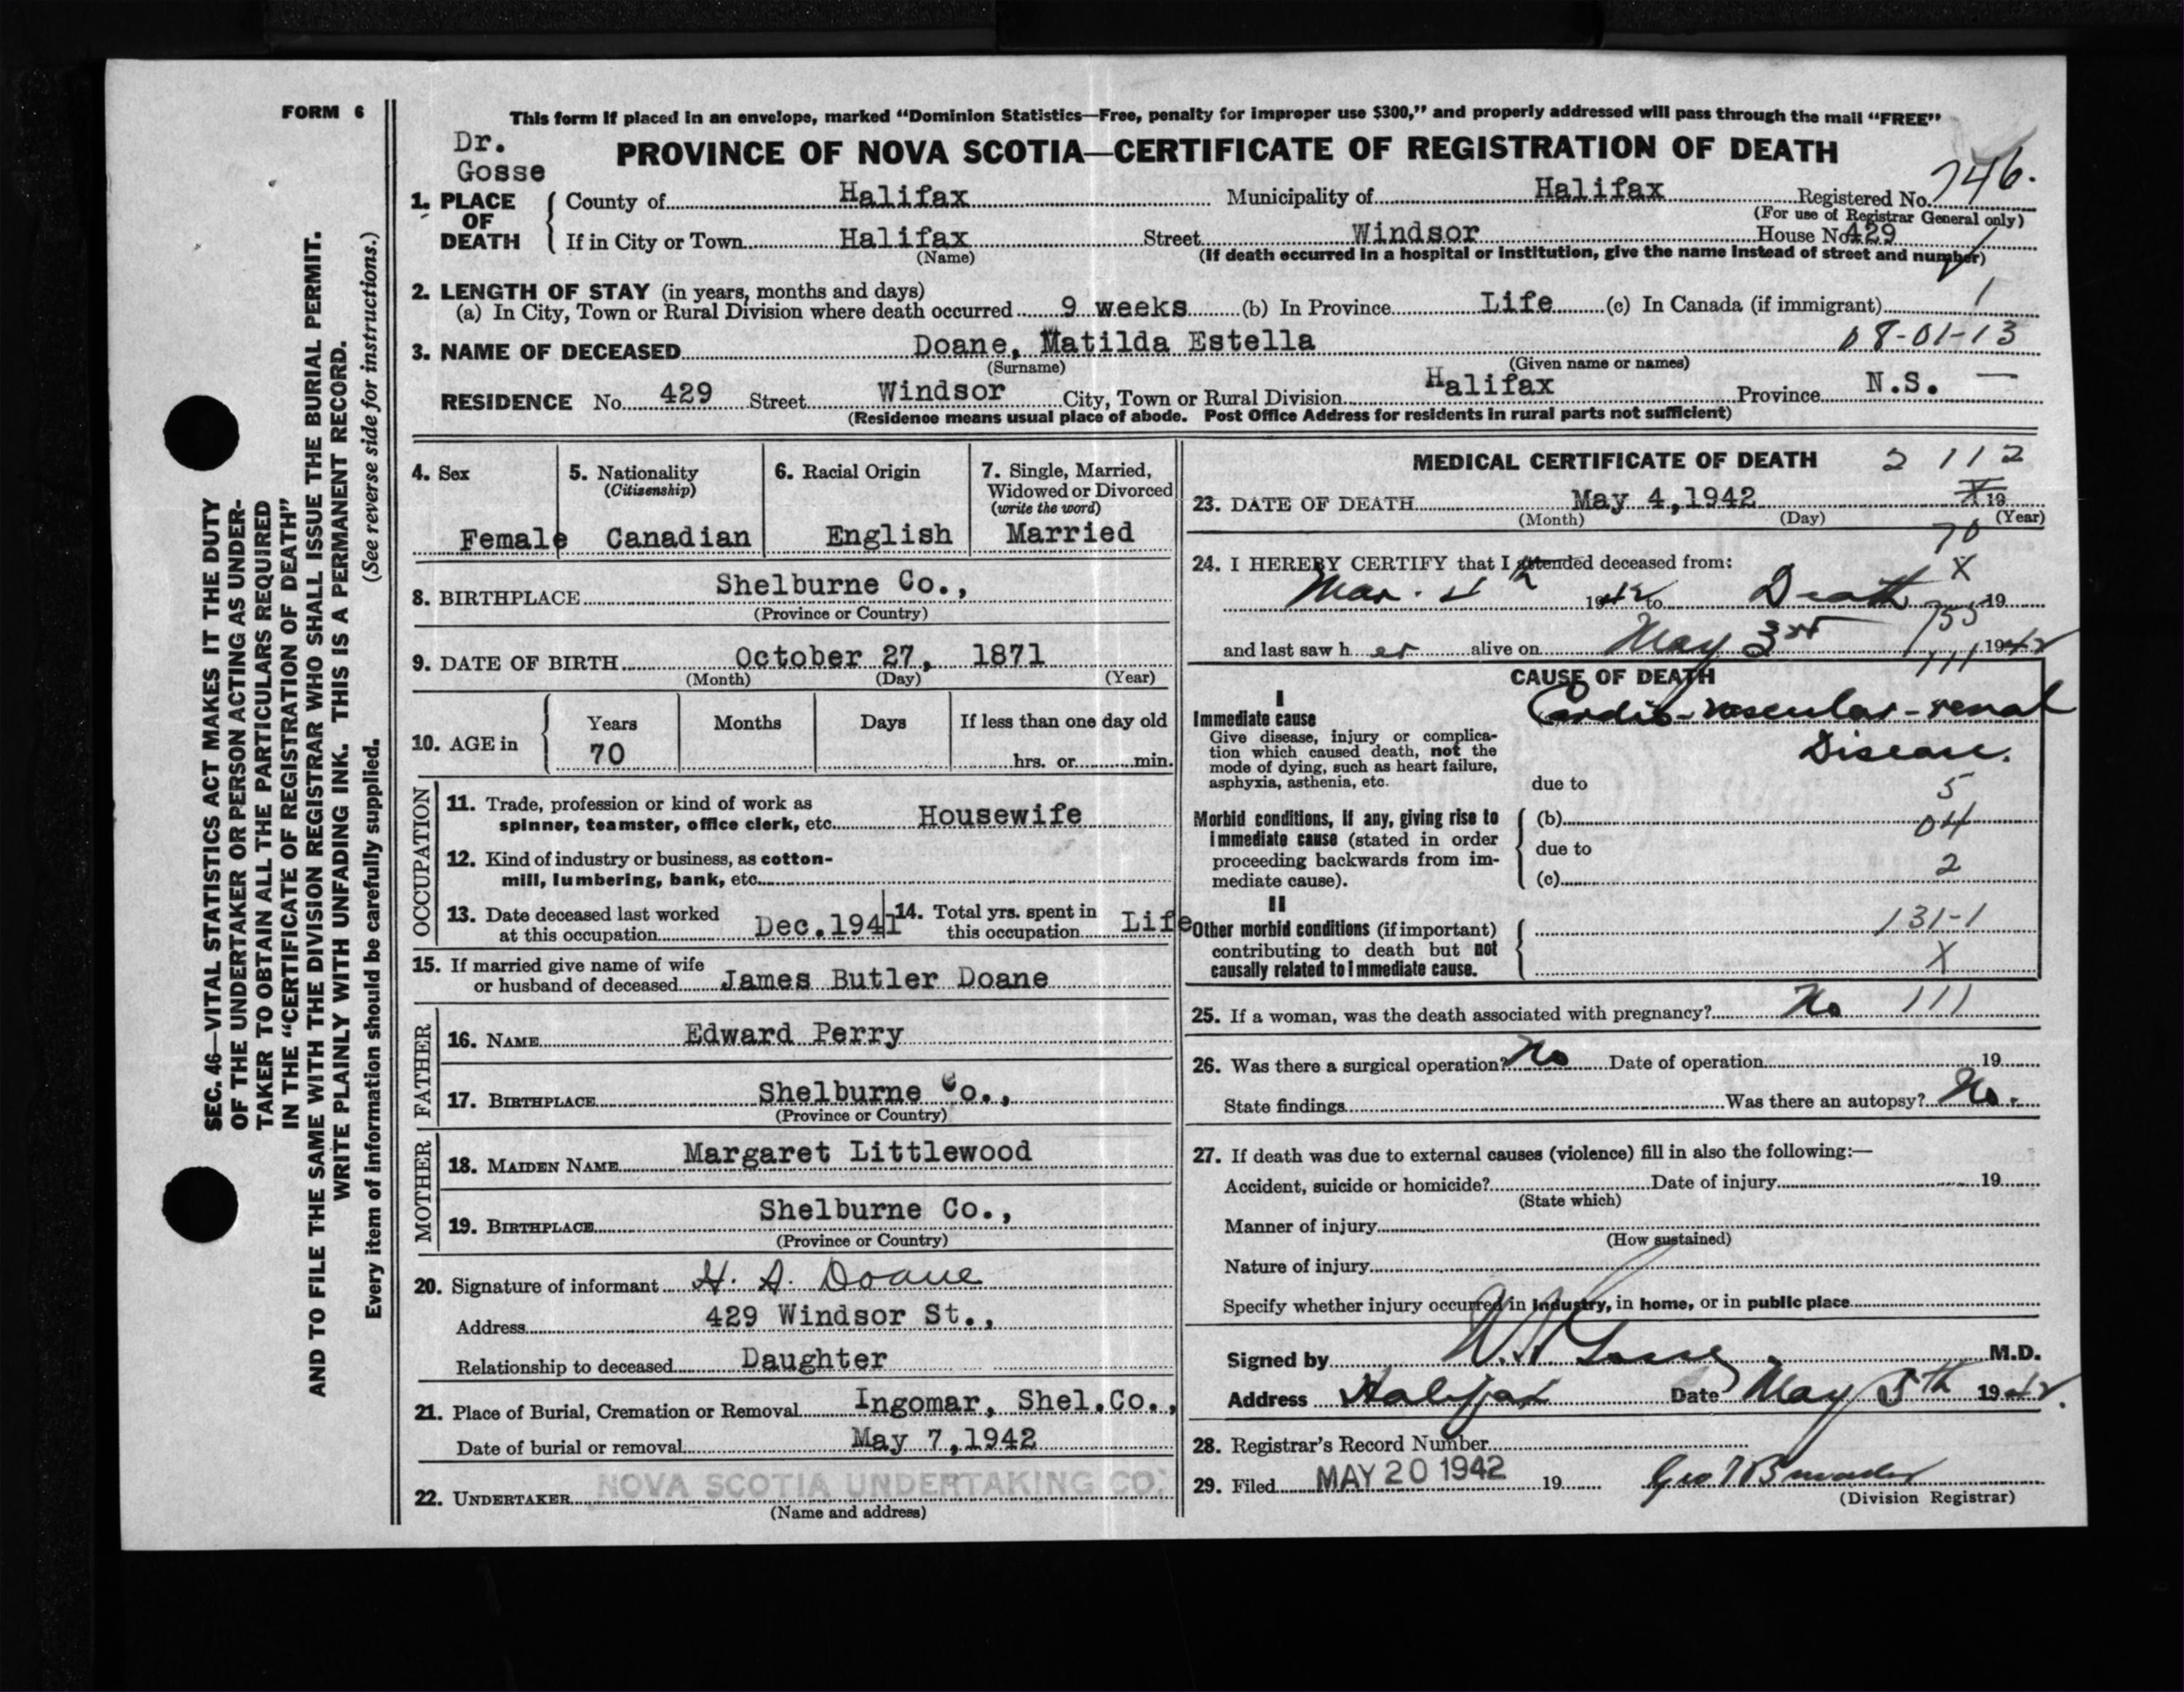 FORM 6
This form if placed in an envelope, marked "Dominion Statistics—Free, penalty for improper use $300," and properly addressed will pass through the mail "FREE"
Dr.
Gosse
PROVINCE OF NOVA SCOTIA—CERTIFICATE OF REGISTRATION OF DEATH
SEC. 46—VITAL STATISTICS ACT MAKES IT THE DUTY
OF THE UNDERTAKER OR PERSON ACTING AS UNDER-
TAKER TO OBTAIN ALL THE PARTICULARS REQUIRED
IN THE "CERTIFICATE OF REGISTRATION OF DEATH"
AND TO FILE THE SAME WITH THE DIVISION REGISTRAR WHO SHALL ISSUE THE BURIAL PERMIT.
WRITE PLAINLY WITH UNFADING INK. THIS IS A PERMANENT RECORD.
Every item of information should be carefully supplied. (See reverse side for instructions.)
1. PLACE OF DEATH
County of Halifax Municipality of Halifax Registered No. 746.
(For use of Registrar General only)
If in City or Town Halifax Street Windsor House No. 429
(Name) (If death occurred in a hospital or institution, give the name instead of street and number)
2. LENGTH OF STAY (in years, months and days)
(a) In City, Town or Rural Division where death occurred 9 weeks (b) In Province Life (c) In Canada (if immigrant) 1
3. NAME OF DECEASED Doane, Matilda Estella 08-01-13
(Surname) (Given name or names)
RESIDENCE No. 429 Street Windsor City, Town or Rural Division Halifax Province N.S. —
(Residence means usual place of abode. Post Office Address for residents in rural parts not sufficient)
4. Sex
Female
5. Nationality
(Citizenship)
Canadian
6. Racial Origin
English
7. Single, Married,
Widowed or Divorced
(write the word)
Married
8. BIRTHPLACE Shelburne Co.,
(Province or Country)
9. DATE OF BIRTH October 27, 1871
(Month) (Day) (Year)
10. AGE in
Years Months Days If less than one day old
70 hrs. or min.
OCCUPATION
11. Trade, profession or kind of work as
spinner, teamster, office clerk, etc. Housewife
12. Kind of industry or business, as cotton-
mill, lumbering, bank, etc.
13. Date deceased last worked
at this occupation Dec.1941
14. Total yrs. spent in
this occupation Life
15. If married give name of wife
or husband of deceased James Butler Doane
FATHER
16. NAME Edward Perry
17. BIRTHPLACE Shelburne Co.,
(Province or Country)
MOTHER
18. MAIDEN NAME Margaret Littlewood
19. BIRTHPLACE Shelburne Co.,
(Province or Country)
20. Signature of informant H. A. Doane
Address 429 Windsor St.,
Relationship to deceased Daughter
21. Place of Burial, Cremation or Removal Ingomar, Shel.Co.,
Date of burial or removal May 7,1942
22. UNDERTAKER NOVA SCOTIA UNDERTAKING CO.
(Name and address)
MEDICAL CERTIFICATE OF DEATH 2 112
23. DATE OF DEATH May 4,1942 X 19
(Month) (Day) (Year)
70
24. I HEREBY CERTIFY that I attended deceased from: X
Mar. 4th 1942 to Death 19
155
and last saw her alive on May 3rd 1942
111
CAUSE OF DEATH
I
Immediate cause Cardio-vascular-renal
Disease.
Give disease, injury or complica-
tion which caused death, not the
mode of dying, such as heart failure,
asphyxia, asthenia, etc. due to
5
Morbid conditions, if any, giving rise to
immediate cause (stated in order
proceeding backwards from im-
mediate cause).
(b) 04
due to
(c) 2
II
Other morbid conditions (if important)
contributing to death but not
causally related to immediate cause.
131-1
X
25. If a woman, was the death associated with pregnancy? No 111
26. Was there a surgical operation? No Date of operation 19
State findings Was there an autopsy? No.
27. If death was due to external causes (violence) fill in also the following:—
Accident, suicide or homicide? Date of injury 19
(State which)
Manner of injury
(How sustained)
Nature of injury
Specify whether injury occurred in industry, in home, or in public place
Signed by Gosse M.D.
Address Halifax Date May 5th 1942.
28. Registrar's Record Number
29. Filed MAY 20 1942 19
(Division Registrar)